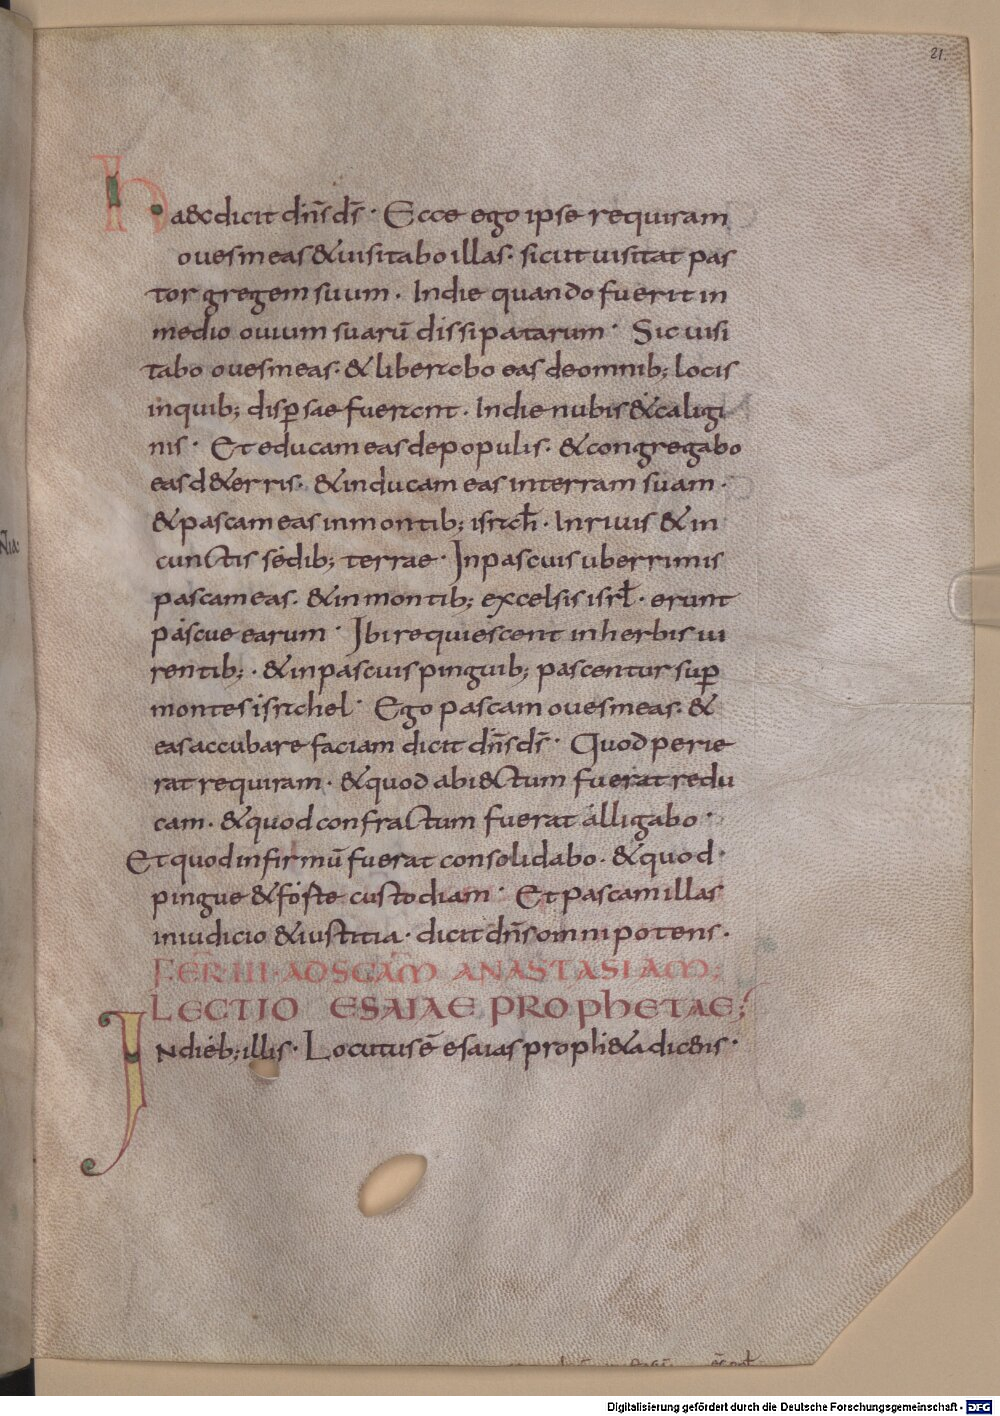 21.
Haec dicit dn̄s ds̄· Ecce ego ipse requiram
oues meas & uisitabo illas· sicut uisitat pas
tor gregem suum· In die quando fuerit in
medio ouium suarū dissipatarum· Sic uisi
tabo oues meas· & liberabo eas de omnib; locis
in quib; disp̄sae fuerant· In die nubis & caligi
nis· Et educam eas de populis· & congregabo
eas d& erris· & inducam eas in terram suam·
& pascam eas in montib; israh̄l· In riuis & in
cunctis sedib; terrae· In pascuis uberrimis
pascam eas· & in montib; excelsis isrl̄· erunt
pascue earum· Ibi requiescent in herbis ui
rentib;· & in pascuis pinguib; pascentur sup̄
montes israhel· Ego pascam oues meas· &
eas accubare faciam dicit dn̄s ds̄· Quod perie
rat requiram· & quod abi&ctum fuerat redu
cam· & quod confractum fuerat alligabo·
Et quod infirmū fuerat consolidabo· & quod·
pingue & forte custodiam· Et pascam illas
in iudicio & iustitia· dicit dn̄s omnipotens·
FER̄ III· AD SC̄AM ANASTASIAM;
LECTIO ESAIAE PROPHETAE;
In dieb; illis· Locutus ē esaias proph&a dicens·
Digitalisierung gefördert durch die Deutsche Forschungsgemeinschaft - DFG